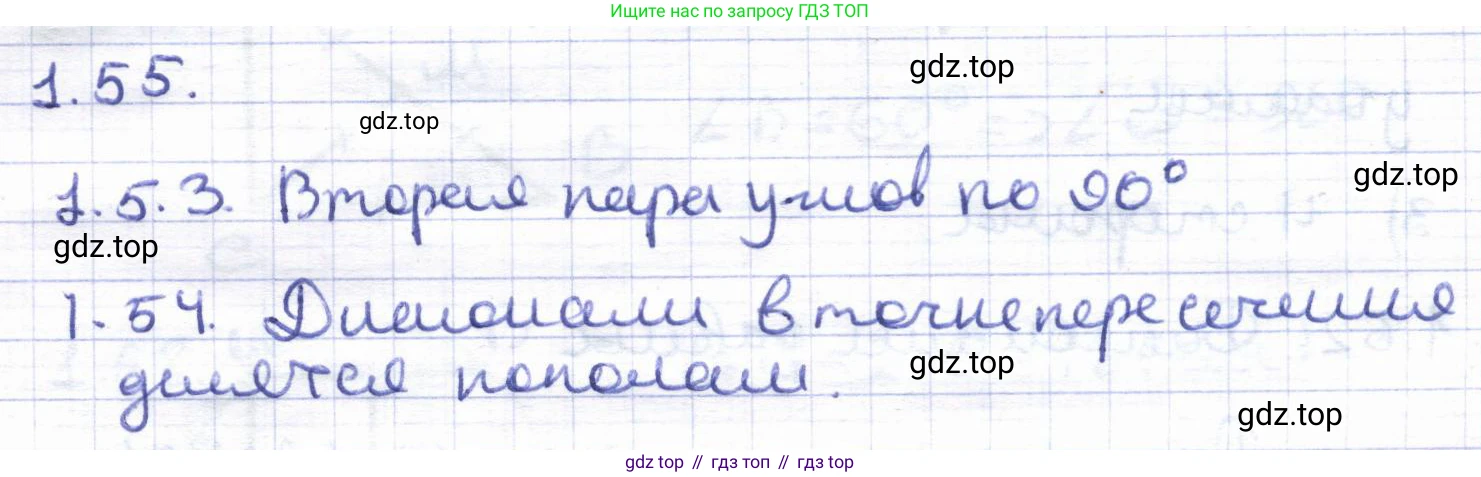 Ищите нас по запросу ГДЗ ТОП
1.55.
gdz.top
gdz.top
1.5.3. Вторая пара углов по 90°
gdz.top
gdz.top
1.54. Диагонали в точке пересечения
делятся пополам.
gdz.top
gdz.top
gdz top // гдз топ // гдз top